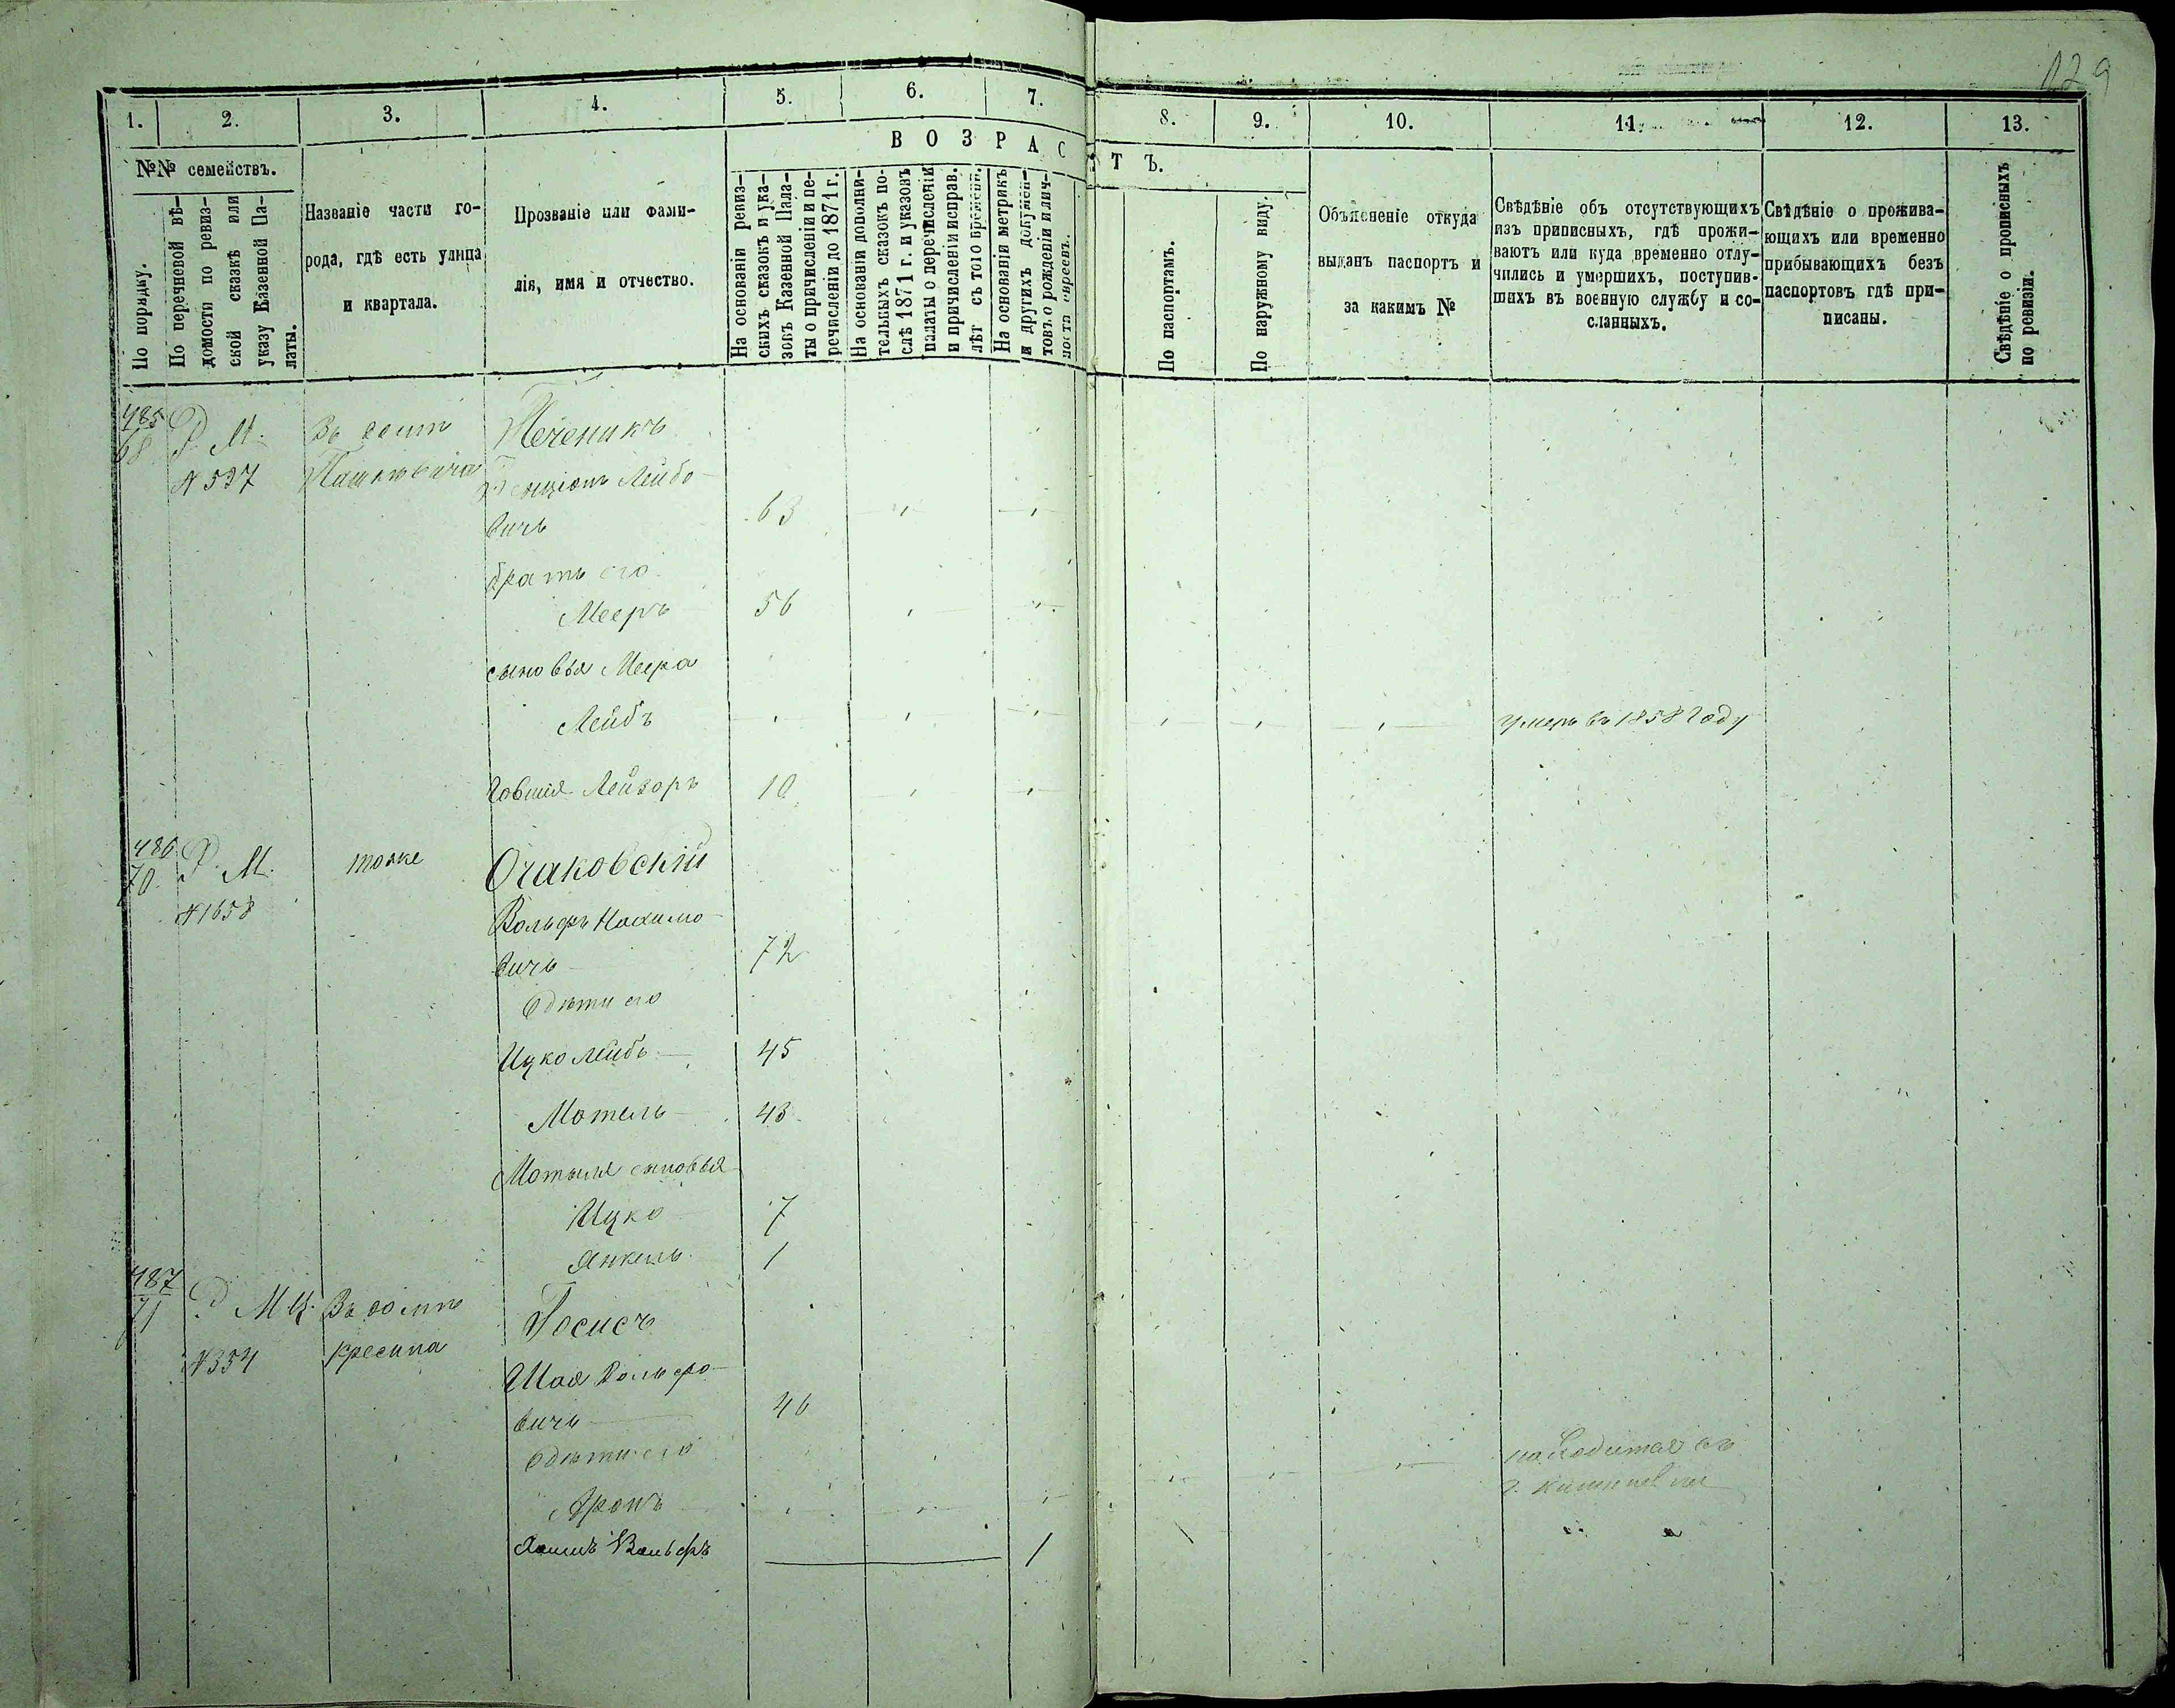 129
1. 2. 3. 4. 5. 6. 7. 8. 9. 10. 11. 12. 13.
№№ семействъ.
По порядку.
По перечневой вѣ-
домости по ревиз-
ской сказкѣ или
указу Казенной Па-
латы.
Названіе части го-
рода, гдѣ есть улица
и квартала.
Прозваніе или фами-
лія, имя и отчество.
ВОЗРАСТЪ.
На основаніи ревиз-
скихъ сказокъ и ука-
зовъ Казенной Пала-
ты о причисленіи и пе-
речисленіи до 1871 г.
На основаніи дополни-
тельныхъ сказокъ по-
слѣ 1871 г. и указовъ
палаты о перечисленіи
и причисленіи исправ.
лѣт съ того времени.
На основаніи метрикъ
и другихъ докумен-
товъ о рожденіи и лич-
ности евреевъ.
По паспортамъ.
По наружному виду.
Объясненіе откуда
выданъ паспортъ и
за какимъ №
Свѣдѣніе объ отсутствующихъ
изъ приписныхъ, гдѣ прожи-
ваютъ или куда временно отлу-
чились и умершихъ, поступив-
шихъ въ военную службу и со-
сланныхъ.
Свѣдѣніе о прожива-
ющихъ или временно
прибывающихъ безъ
паспортовъ гдѣ при-
писаны.
Свѣдѣніе о прописныхъ
по ревизіи.
485 Р. М. Въ домѣ Печеникъ
68 N 537 Пашкевича
Бенціонъ Лейбо-
вичъ 63
братъ его
Мееръ 56
сыновья Меера
Лейбъ умеръ въ 1858 году
Лейзоръ 10
486 Р. М. тоже Очаковскій
70 N 1658
Вольфъ Нахимо-
вичъ 72
дѣти его
Ицко Лейбъ 45
Мотель 43
Мотеля сыновья
Ицко 7
Янкель 1
487 Р. М Ц. Въ домѣ
71 N 354 Кресина
Шая Вольфо-
вичъ 46
дѣти его находится въ
г. Кишиневѣ
Аронъ
Вольфъ 1 " "